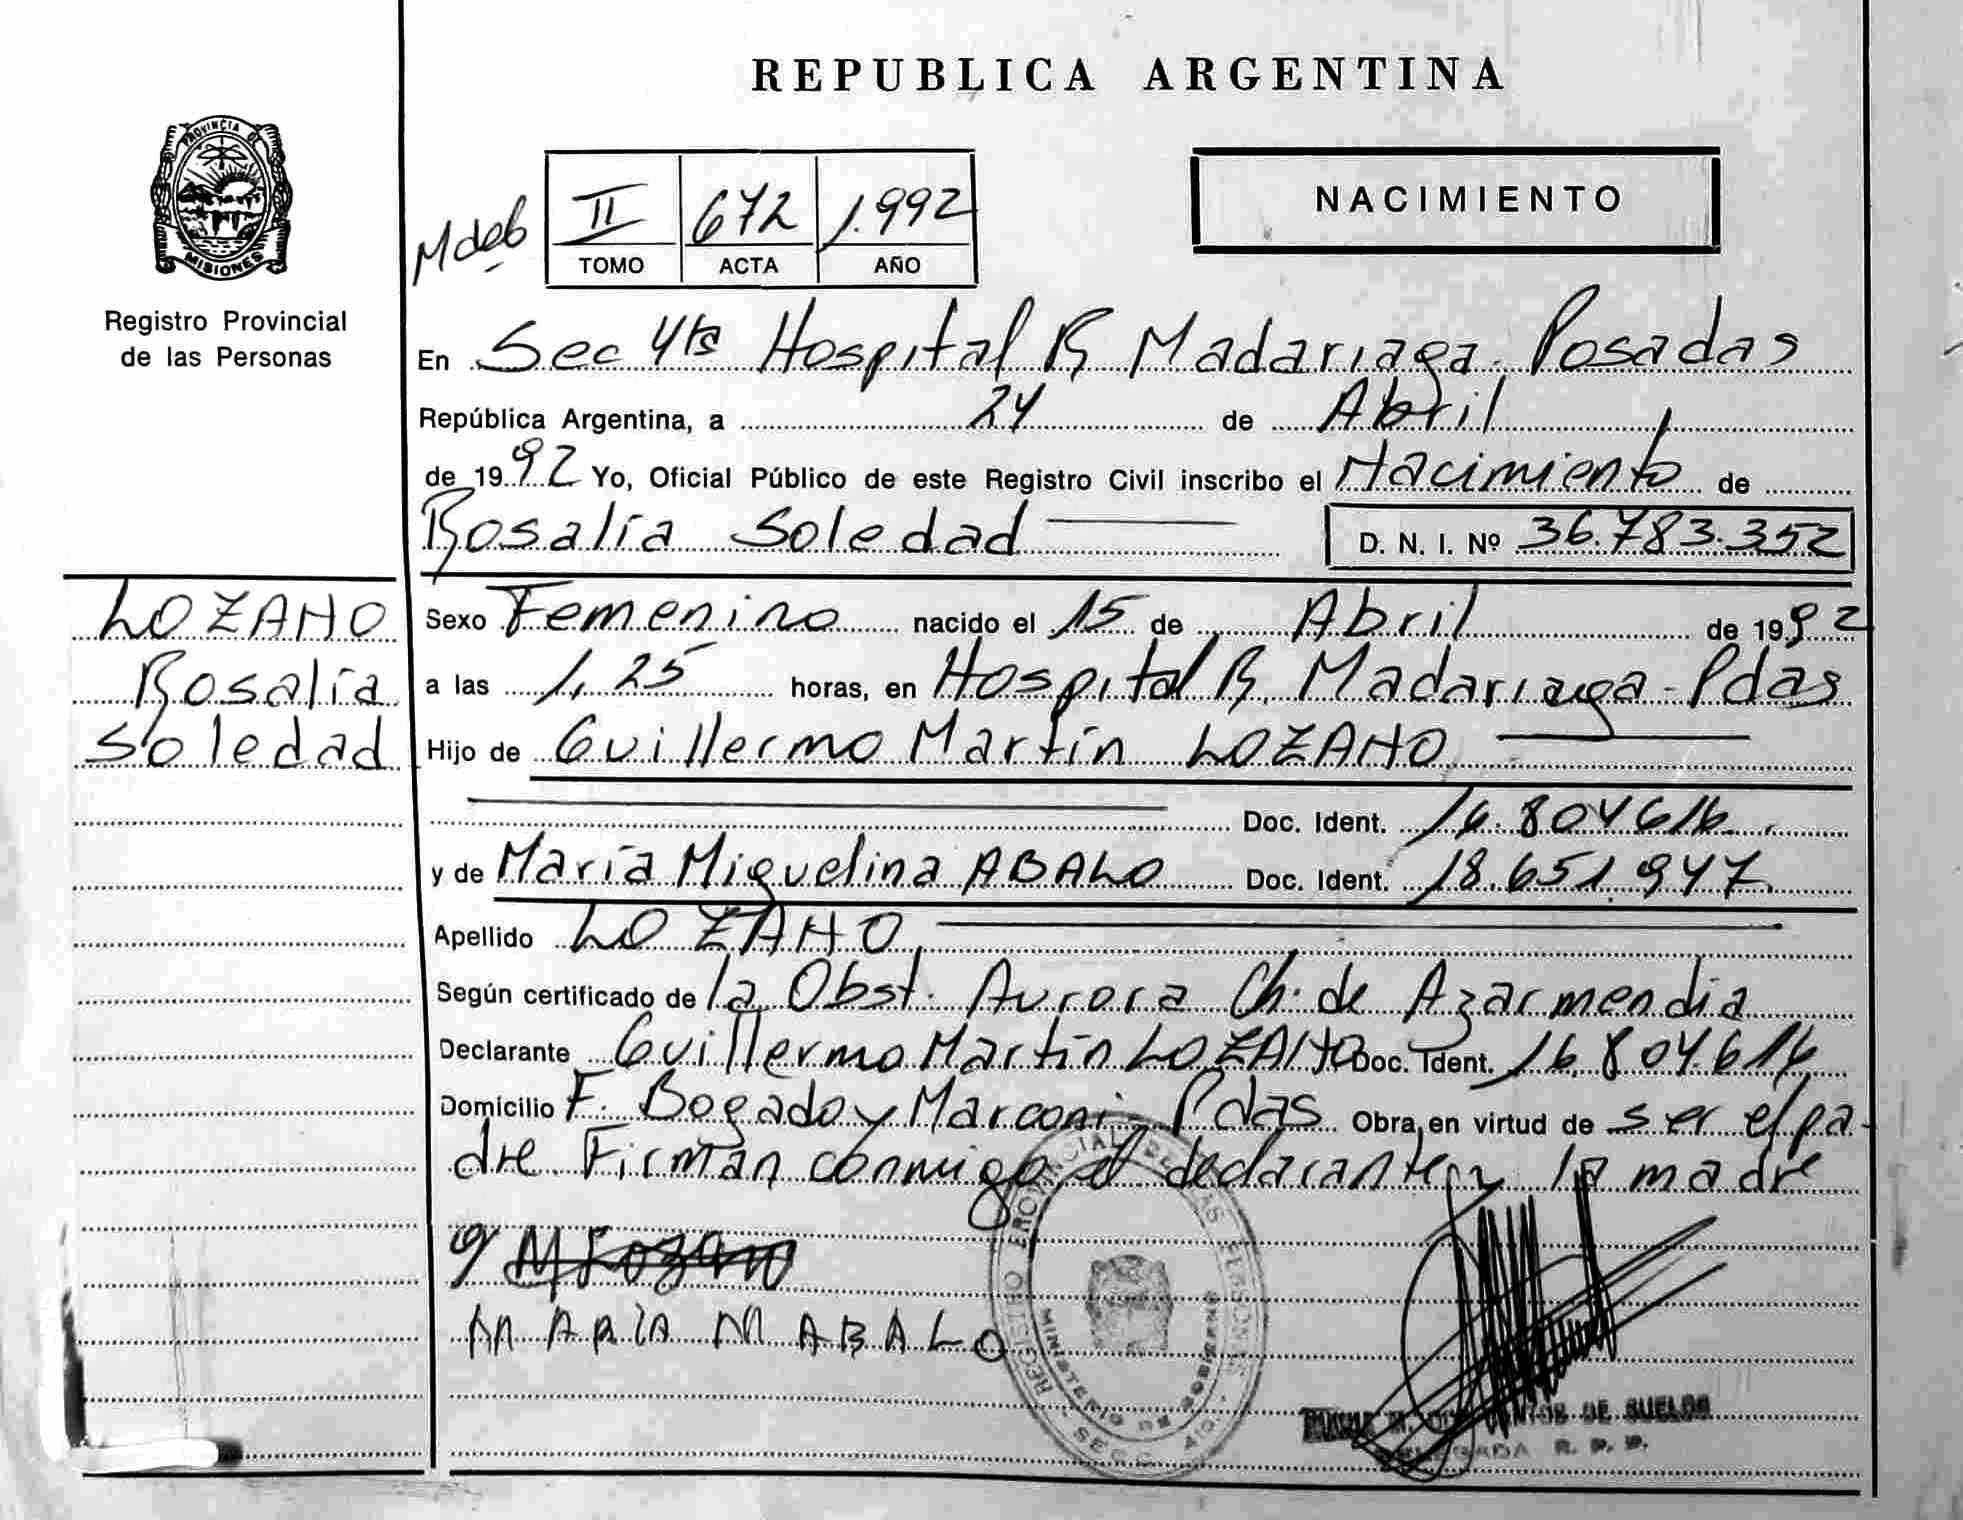 REPUBLICA ARGENTINA
PROVINCIA DE
MISIONES
Registro Provincial
de las Personas
NACIMIENTO
II 672 1.992
TOMO ACTA AÑO
En Sec 4ta Hospital R Madariaga. Posadas
República Argentina, a 24 de Abril
de 1992 Yo, Oficial Público de este Registro Civil inscribo el Nacimiento de
Rosalía Soledad D. N. I. Nº 36.783.352
LOZANO
Rosalía
Soledad
Sexo Femenino nacido el 15 de Abril de 1992
a las 1,25 horas, en Hospital R. Madariaga - Pdas
Hijo de Guillermo Martín LOZANO
Doc. Ident. 16.804616.
y de María Miguelina ABALO Doc. Ident. 18.651.947.
Apellido LOZANO
Según certificado de la Obst. Aurora Ch. de Azarmendia
Declarante Guillermo Martín LOZANO Doc. Ident. 16.804.616
Domicilio F. Bogado y Marconi. Pdas Obra en virtud de ser el pa-
dre Firman conmigo el declarante y la madre
MARIA M ABALO
REGISTRO PROVINCIAL DE LAS PERSONAS
MINISTERIO DE GOBIERNO
DE SUELOS
R. P. P.